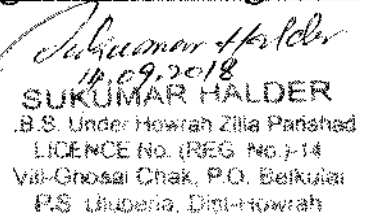 Sukumar Halder
14.09.2018
SUKUMAR HALDER
.B.S. Under Howrah Zilla Parishad
LICENCE No. (REG No.)-14
Vill-Ghosal Chak, P.O. Belkulai
P.S. Uluberia, Dist-Howrah